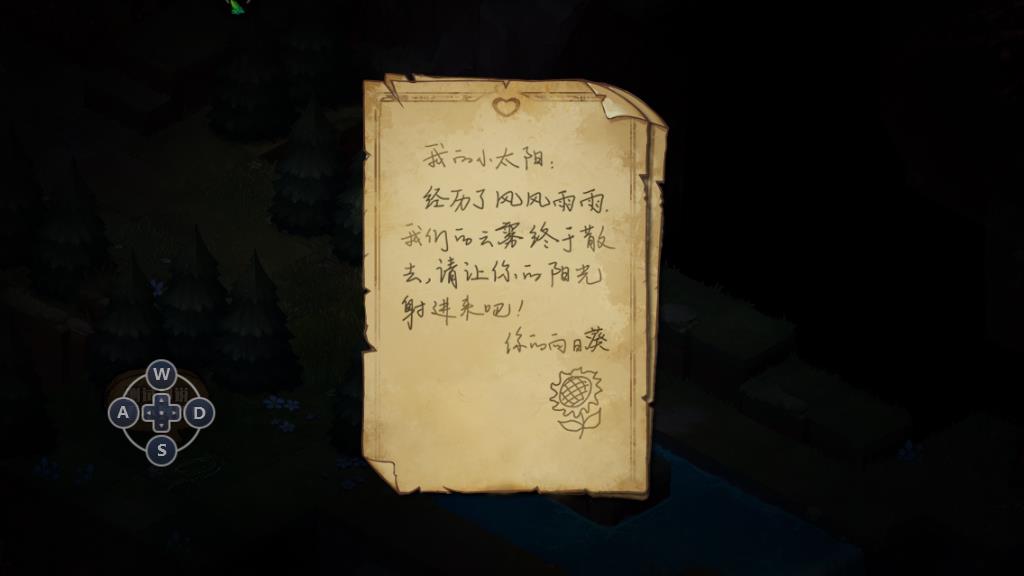 我的小太阳：
经历了风风雨雨.
我们的云雾终于散
去,请让你的阳光
射进来吧！
你的向日葵
W
A
D
S